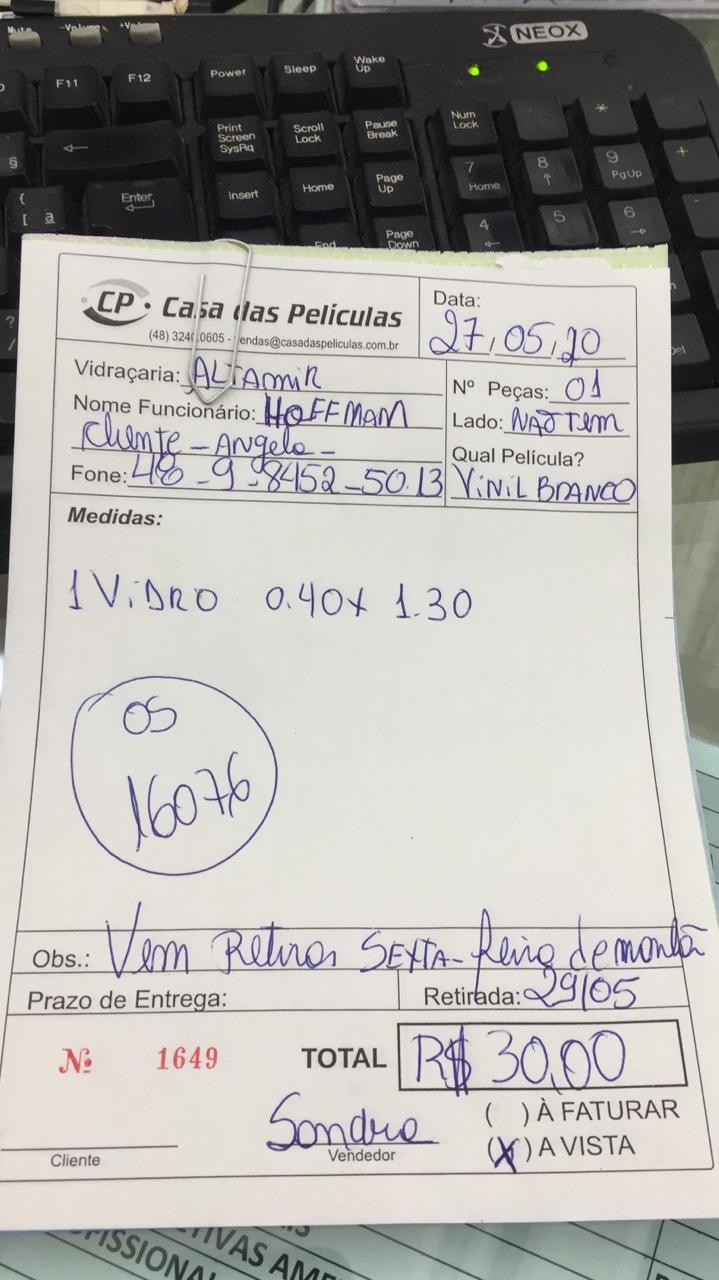 Mute -Volume +Volume
NEOX
F11 F12 Power Sleep Wake Up
Print Screen SysRq Scroll Lock Pause Break Num Lock
7 Home 8 9 PgUp +
*
§
{ [ a Enter Insert Home Page Up
4 5 6
End Page Down
? /
CP Casa das Películas
(48) 324 .0605 - endas@casadaspeliculas.com.br
Data:
27/05/20
Vidraçaria: ALTAMIR
Nome Funcionário: HOFFMAM
Cliente - Angelo -
Fone: 48-9-8452-50.13
Nº Peças: 01
Lado: NÃO TEM
Qual Película?
VINIL BRANCO
Medidas:
1 VIDRO 0.40 x 1.30
OS
16076
Obs.: Vem Retirar SEXTA-feira de manhã
Prazo de Entrega:
Retirada: 29/05
Nº 1649
TOTAL R$ 30,00
( ) À FATURAR
(X) A VISTA
Sandra
Cliente
Vendedor
TIVAS AM
FISSIONA